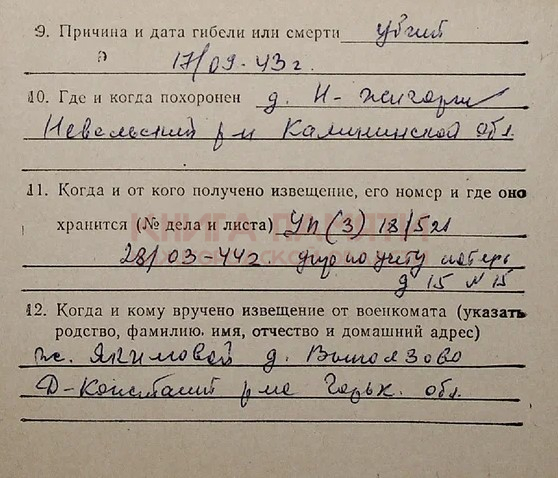 9. Причина и дата гибели или смерти убит
17/09-43г.
10. Где и когда похоронен д. Н-Жигары
Невельский р-н Калининской обл.
11. Когда и от кого получено извещение, его номер и где оно
хранится (№ дела и листа) УП(3) 18/521
28/03-44г. учету потерь
д 15 № 15
12. Когда и кому вручено извещение от военкомата (указать
родство, фамилию. имя, отчество и домашний адрес)
ж. Якимовой д. Вымязово
Д-Констант р-на Горьк. обл.
КНИГА ПАМЯТИ